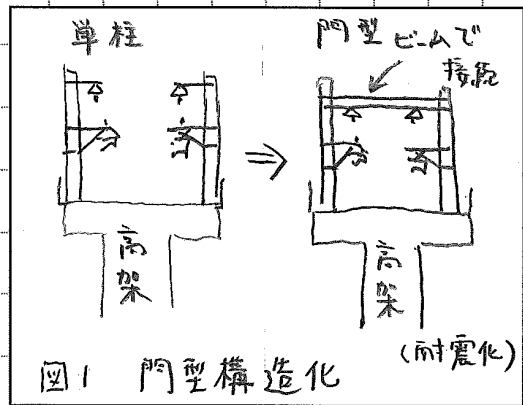 単柱
門型 ビームで
接続
高架
高架
(耐震化)
図1 門型構造化